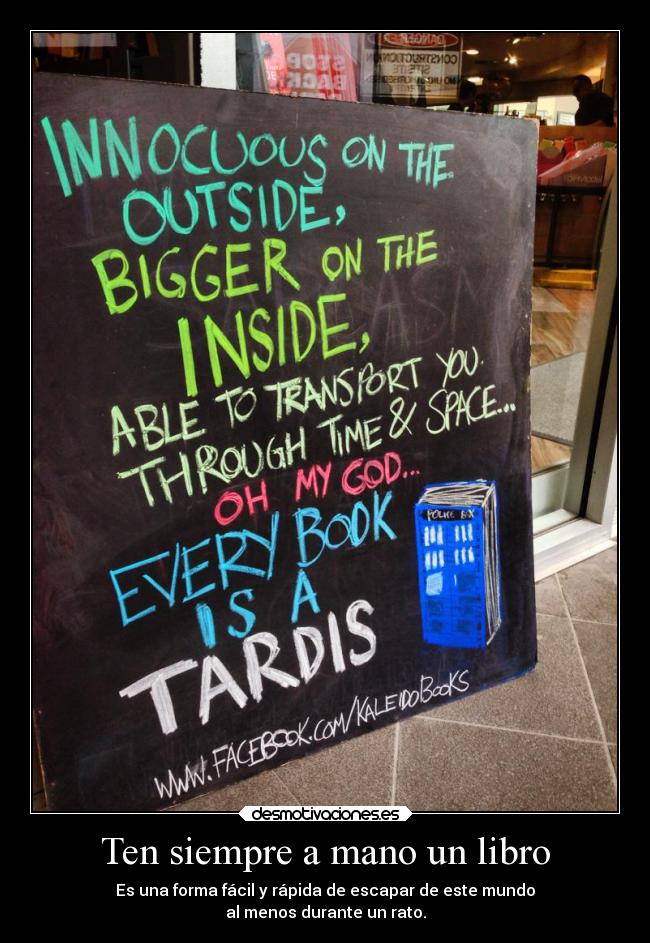 STOP
BACK
DANGER
CONSTRUCTION
SITE
INNOCUOUS ON THE
OUTSIDE,
BIGGER ON THE
INSIDE,
ABLE TO TRANSPORT YOU
THROUGH TIME & SPACE...
OH MY GOD...
EVERY BOOK
IS A
TARDIS
POLICE BOX
WWW.FACEBOOK.COM/KALEIDOBOOKS
desmotivaciones.es
Ten siempre a mano un libro
Es una forma fácil y rápida de escapar de este mundo
al menos durante un rato.